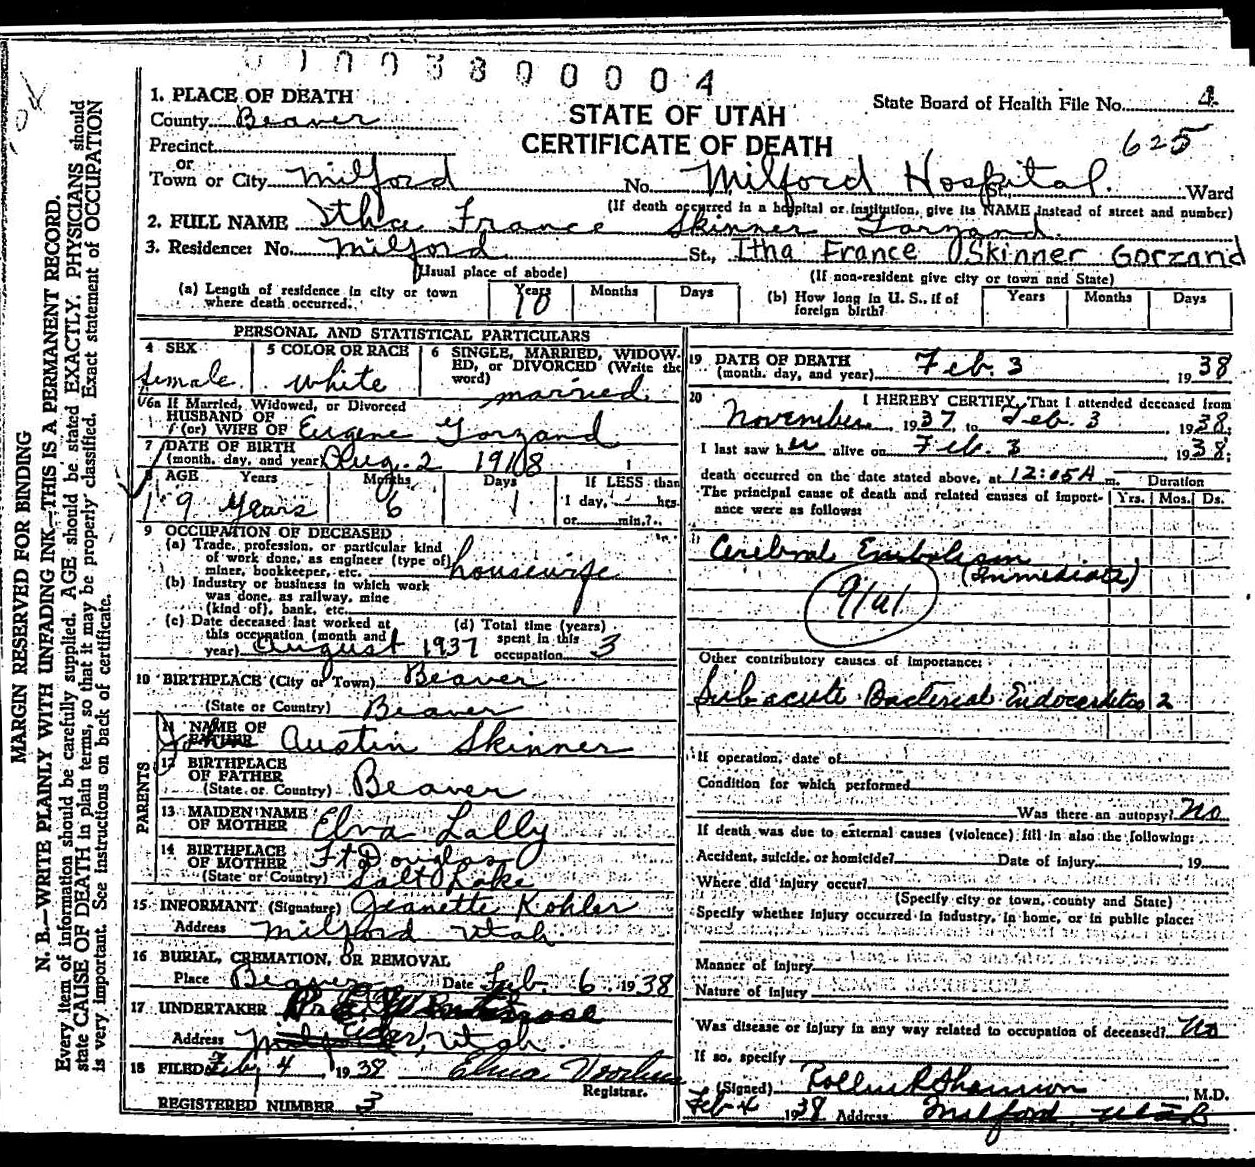 0100380 0004
1. PLACE OF DEATH
STATE OF UTAH
CERTIFICATE OF DEATH
State Board of Health File No. 4
625
County Beaver
Precinct
or
Town or City Milford No. Milford Hospital St. Ward
(If death occurred in a hospital or institution, give its NAME instead of street and number)
2. FULL NAME Itha France Skinner Gorzand
3. Residence: No. Milford St., Itha France Skinner Gorzand
(Usual place of abode) (If non-resident give city or town and State)
(a) Length of residence in city or town where death occurred. Years 10 Months Days
(b) How long in U. S., if of foreign birth? Years Months Days
PERSONAL AND STATISTICAL PARTICULARS
4 SEX female
5 COLOR OR RACE white
6 SINGLE, MARRIED, WIDOWED, or DIVORCED (Write the word) married
6a If Married, Widowed, or Divorced
HUSBAND OF
(or) WIFE OF Eugene Gorzand
7 DATE OF BIRTH
(month, day, and year) Aug. 2 1918
8 AGE Years Months Days If LESS than
19 years 6 1 1 day, hrs.
or min.?
9 OCCUPATION OF DECEASED
(a) Trade, profession, or particular kind
of work done, as engineer (type of)
miner, bookkeeper, etc. housewife
(b) Industry or business in which work
was done, as railway, mine
(kind of), bank, etc.
(c) Date deceased last worked at
this occupation (month and
year) August 1937
(d) Total time (years)
spent in this
occupation 3
10 BIRTHPLACE (City or Town) Beaver
(State or Country) Beaver
PARENTS
11 NAME OF
FATHER Austin Skinner
12 BIRTHPLACE
OF FATHER
(State or Country) Beaver
13 MAIDEN NAME
OF MOTHER Elva Lally
14 BIRTHPLACE
OF MOTHER Ft Douglas
(State or Country) Salt Lake
15 INFORMANT (Signature) Jeanette Kohler
Address Milford Utah
16 BURIAL, CREMATION, OR REMOVAL
Place Beaver Date Feb. 6. 1938
17 UNDERTAKER
Address Utah.
18 FILED Feb, 4, 1938 Elma
Registrar.
REGISTERED NUMBER 3
19 DATE OF DEATH
(month, day, and year) Feb. 3, 1938
20 I HEREBY CERTIFY, That I attended deceased from
November 1937, to Feb. 3 1938;
I last saw her alive on Feb. 3 1938;
death occurred on the date stated above, at 12:05A m. Duration
The principal cause of death and related causes of importance were as follows: Yrs. Mos. Ds.
Cerebral Embolism
(Immediate)
91a1
Other contributory causes of importance:
Subacute Bacterial Endocarditis 2
If operation, date of
Condition for which performed
Was there an autopsy? No
If death was due to external causes (violence) fill in also the following:
Accident, suicide, or homicide? Date of injury 19
Where did injury occur?
(Specify city or town, county and State)
Specify whether injury occurred in industry, in home, or in public place:
Manner of injury
Nature of injury
Was disease or injury in any way related to occupation of deceased? No
If so, specify
(Signed) M.D.
Feb 4 1938 Address Milford, Utah
MARGIN RESERVED FOR BINDING
N. B.—WRITE PLAINLY WITH UNFADING INK—THIS IS A PERMANENT RECORD.
Every item of information should be carefully supplied. AGE should be stated EXACTLY. PHYSICIANS should
state CAUSE OF DEATH in plain terms, so that it may be properly classified. Exact statement of OCCUPATION
is very important. See instructions on back of certificate.